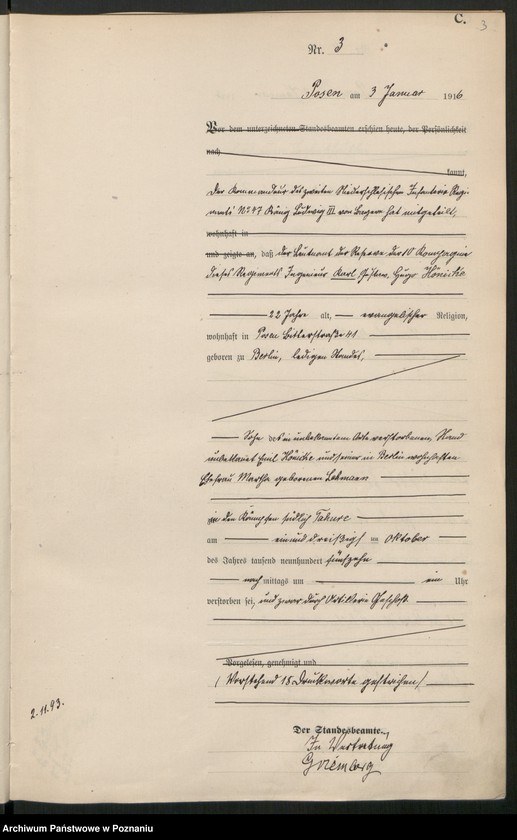 C.
3
Nr. 3
Posen am 3 Januar 1916
Vor dem unterzeichneten Standesbeamten erschien heute, der Persönlichkeit
nach
kannt,
Der Kommandeur des zweiten Niederschlesischen Infanterie Regi-
ments No 47 König Ludwig III von Bayern hat mitgeteilt,
wohnhaft in
und zeigte an, daß der Leutnant der Reserve der 10 Kompagnie
dieses Regiments Ingenieur Karl Gustav Hugo Hönicke
22 Jahre alt, evangelischer Religion,
wohnhaft in Posen Ritterstraße 41
geboren zu Berlin, ledigen Standes,
Sohn des in unbekanntem Orte verstorbenen, Stand
unbekannt Emil Hönicke und seiner in Berlin wohnhaften
Ehefrau Martha geborenen Lehmann
in den Kämpfen südlich Tahure
am einunddreißigsten Oktober
des Jahres tausend neunhundert fünfzehn
nach mittags um ein Uhr
verstorben sei, und zwar durch Artillerie Geschoß.
Vorgelesen, genehmigt und
(Vorstehend 18 Druckworte gestrichen)
2.11.93.
Der Standesbeamte.
In Vertretung
Archiwum Państwowe w Poznaniu